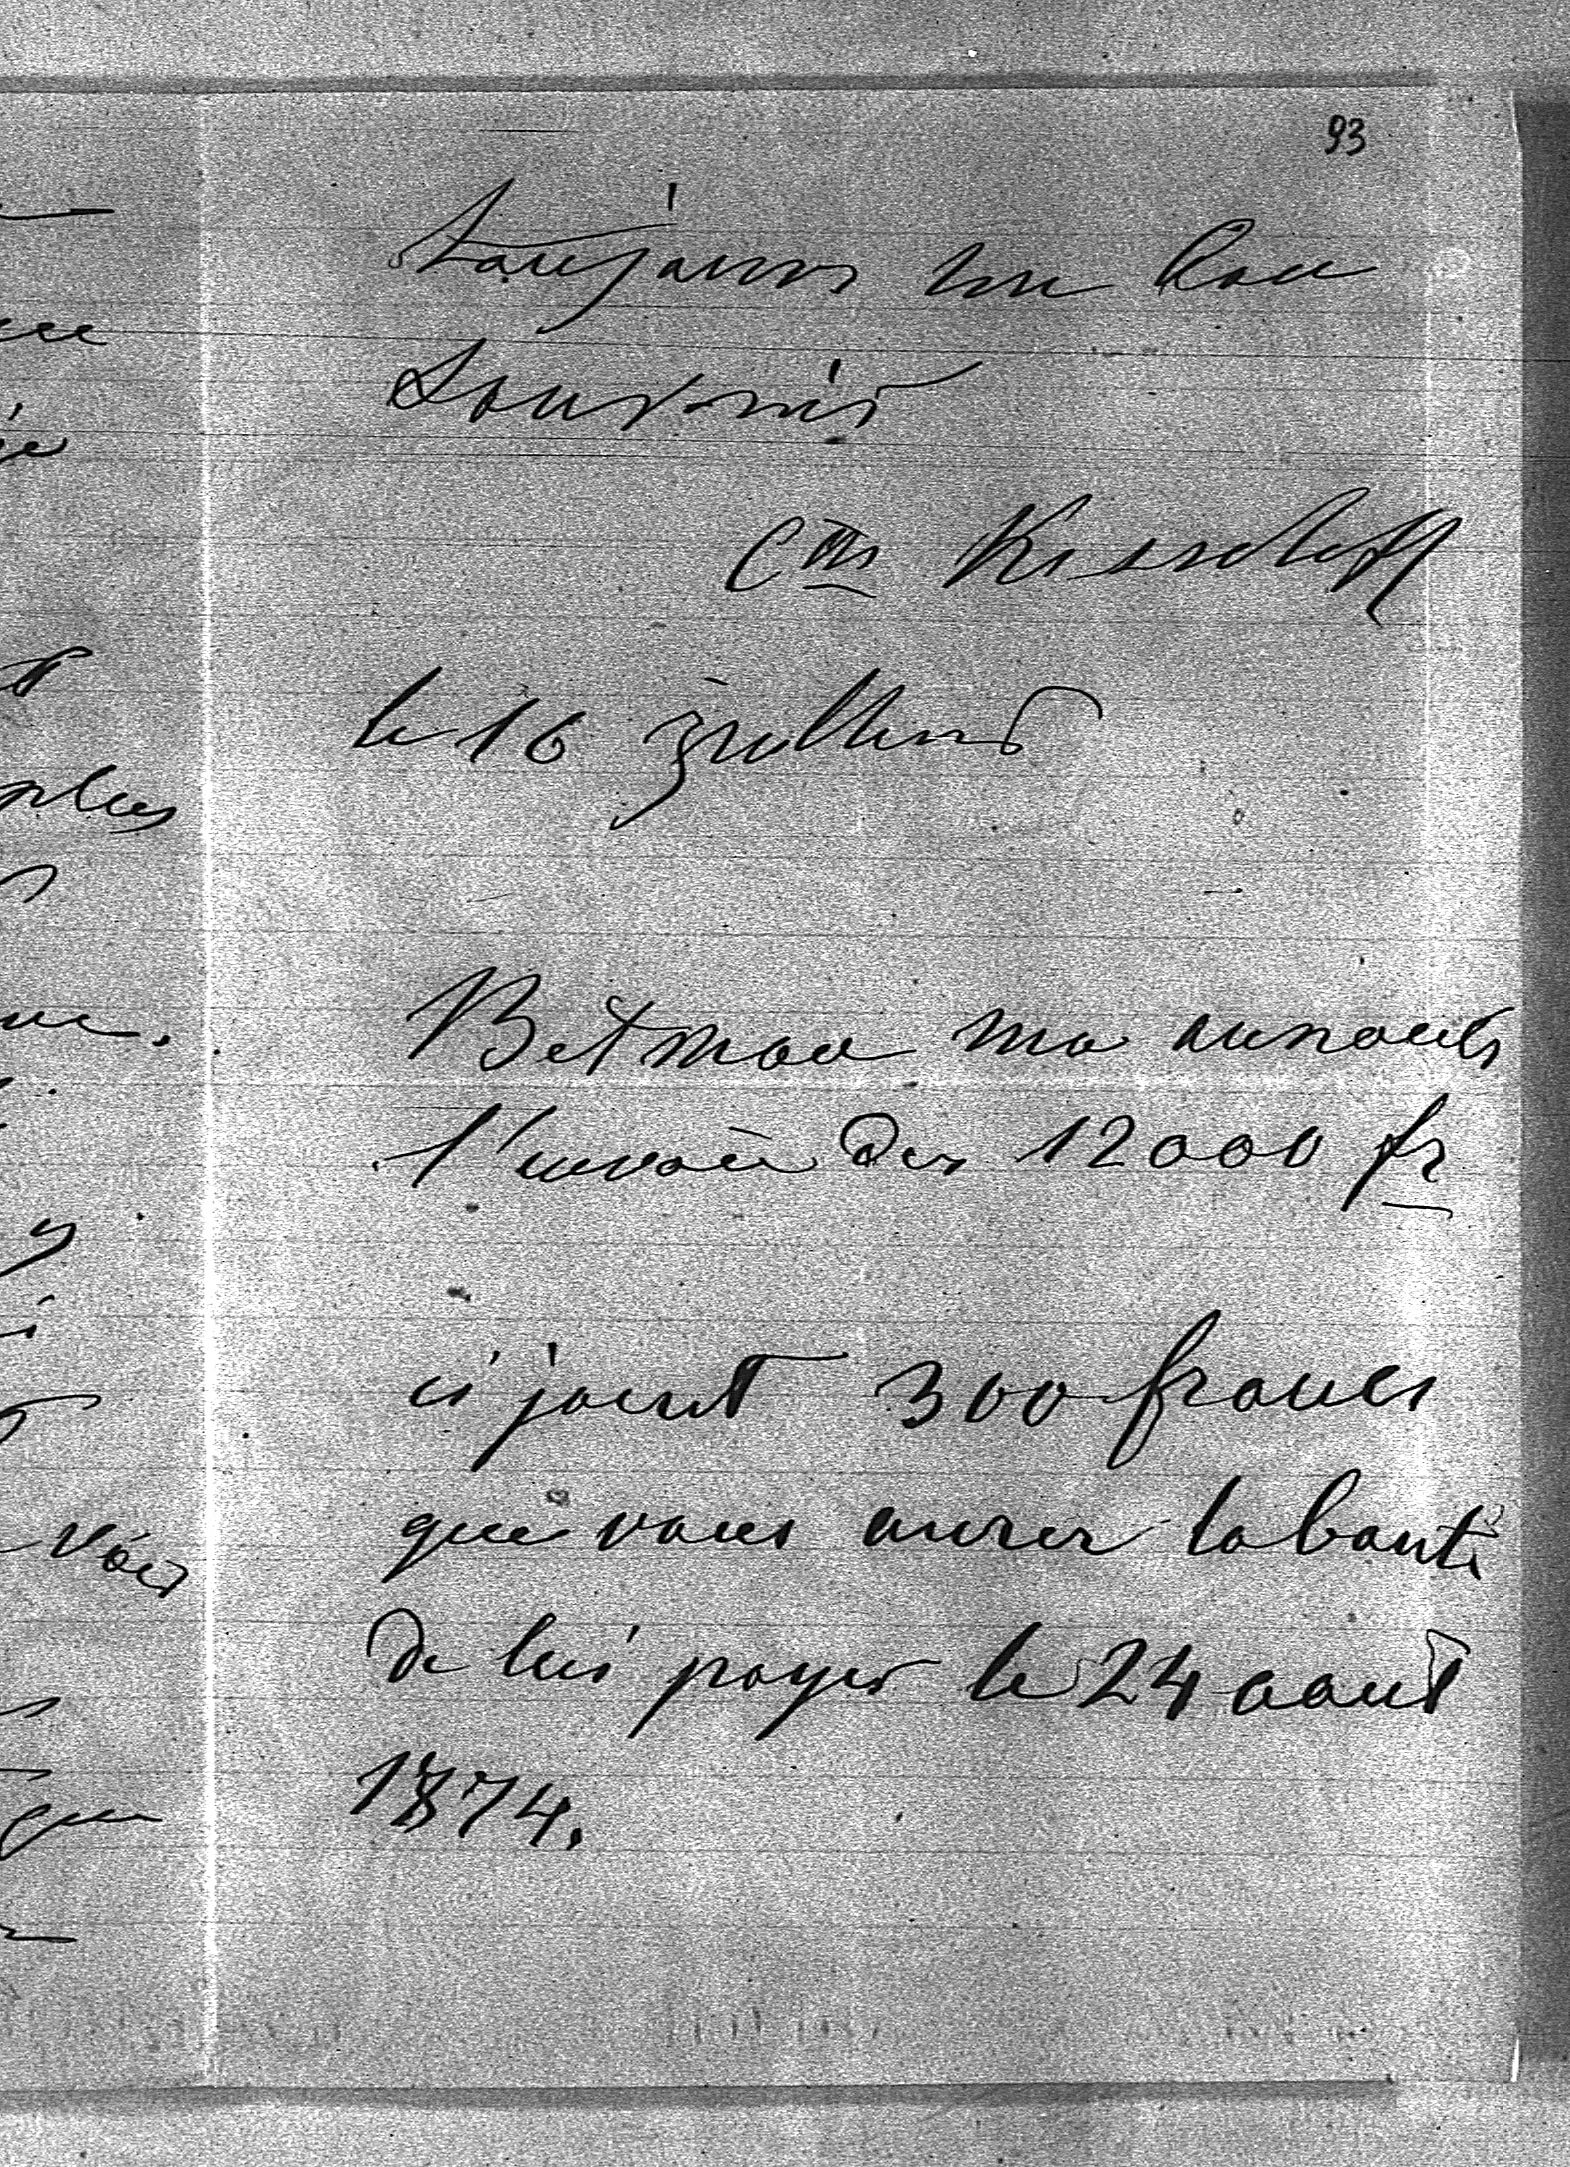 93
toujours un bon
souvenir
Ctss Kisseleff
le 16 juillet
Betman ma annoncés
l'envoie des 12000 fr
ci joint 300 francs
que vous aurer la bonté
de lui payer le 24 aout
1874.
plus
voir
que